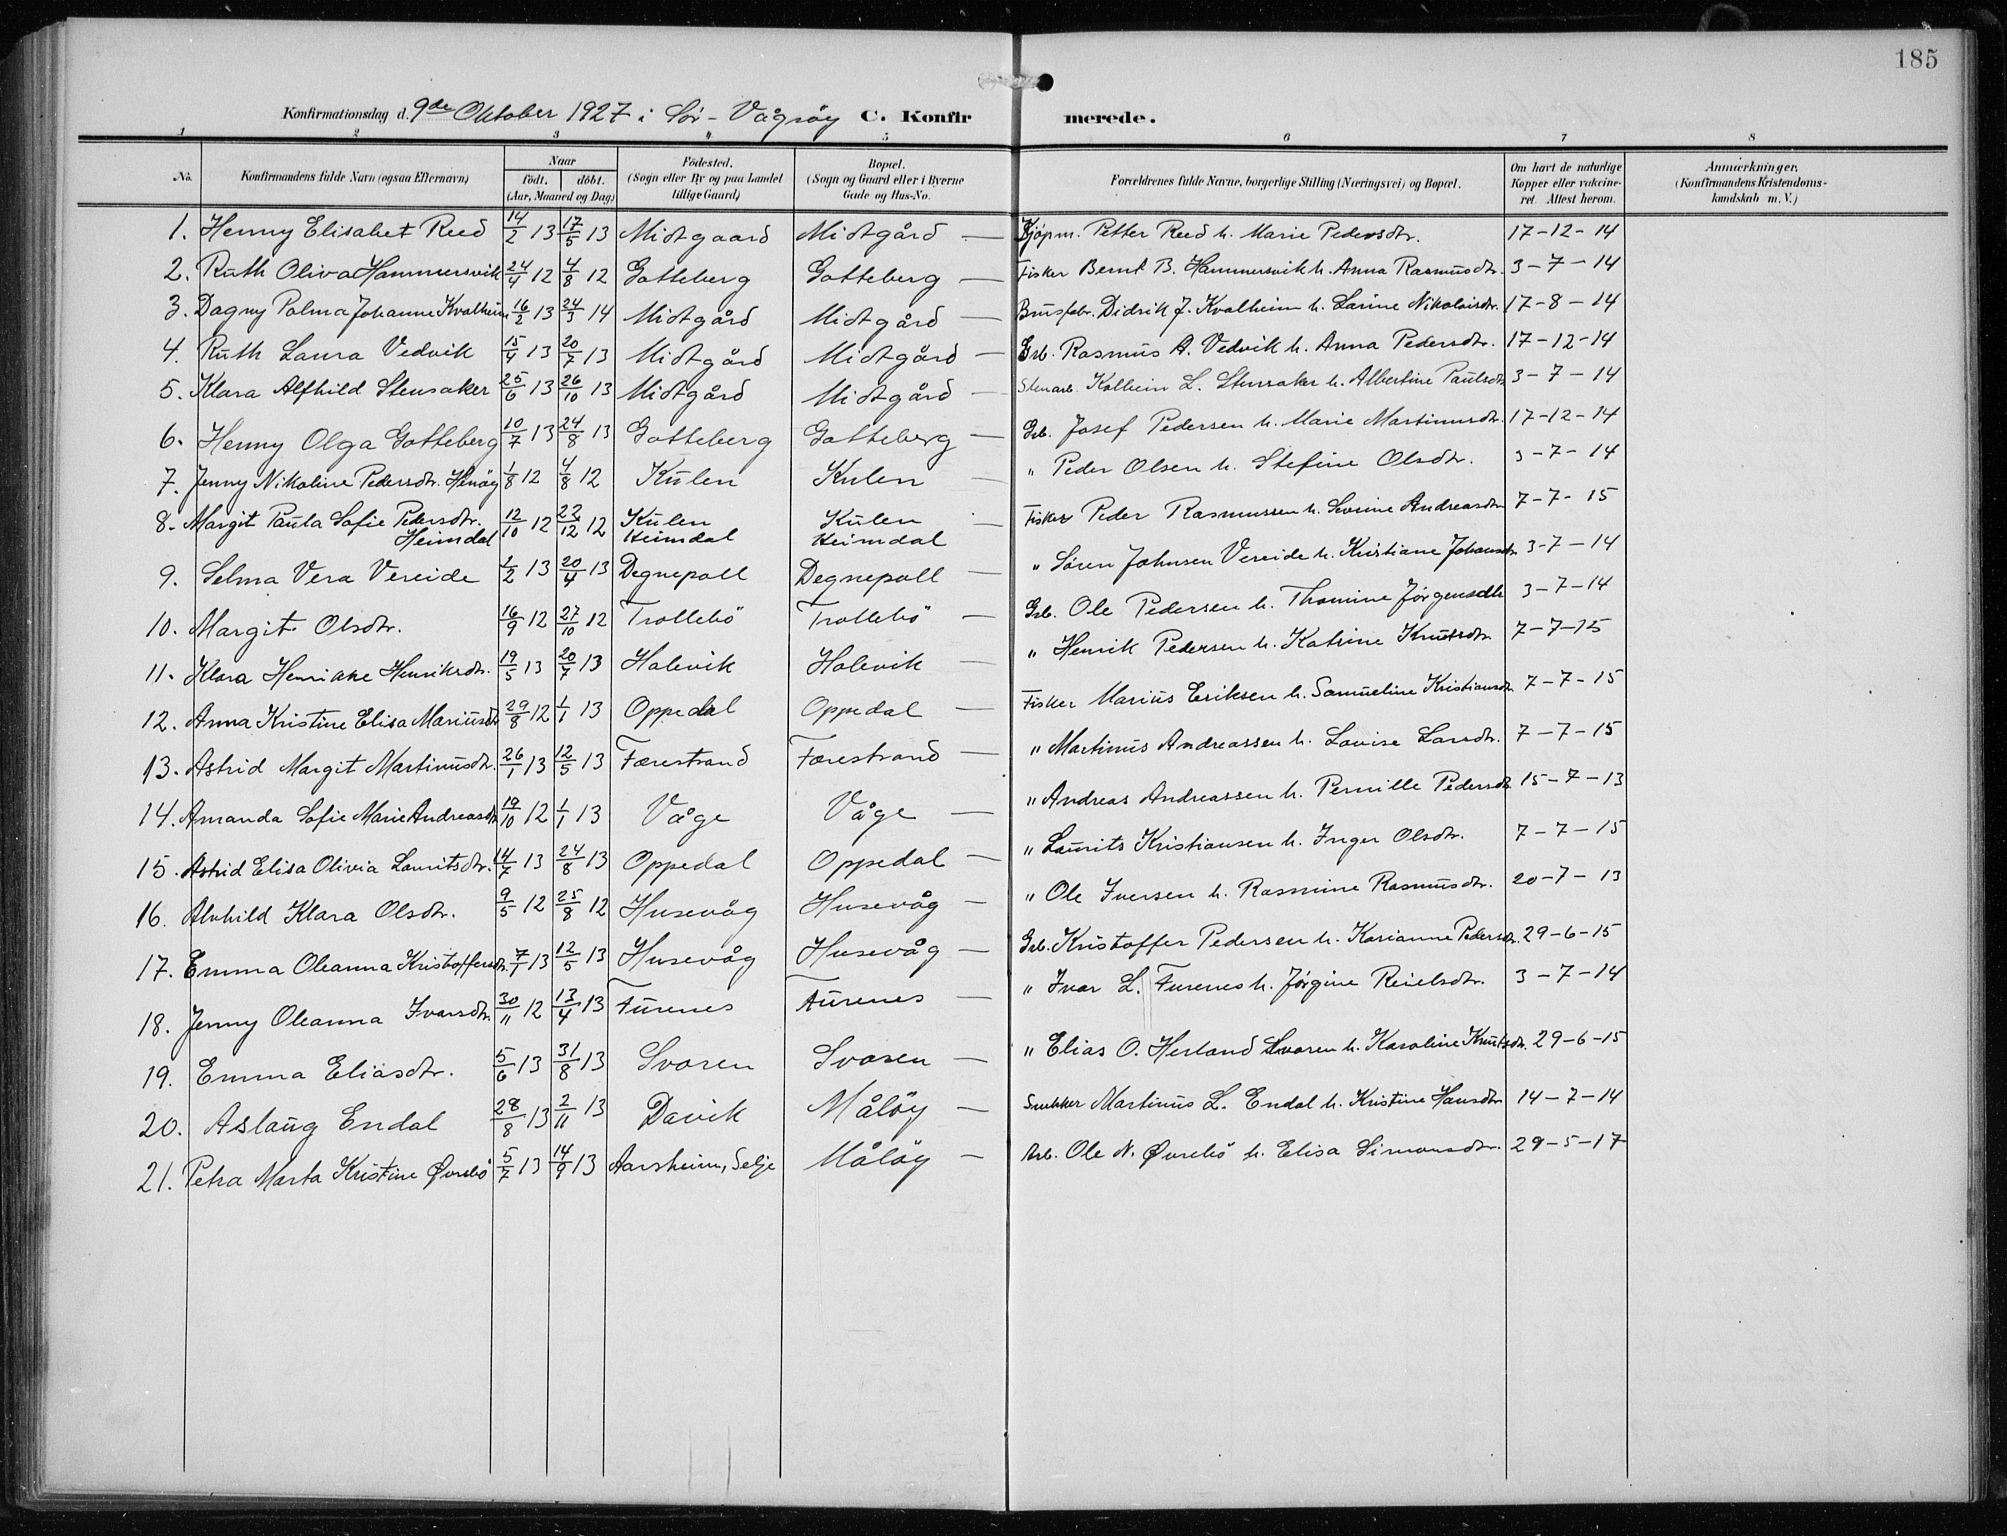 185
Konfirmationsdag d. 9de Oktober 1927 i Sør-Vågsøy C. Konfirmerede.
1 2 3 4 5 6 7 8
No. Konfirmandens fulde Navn (ogsaa Efternavn) Naar født. døbt. (Aar, Maaned og Dag) Fødested. (Sogn eller By og paa Landet tillige Gaard) Bopæl. (Sogn og Gaard eller i Byerne Gade og Hus-No. Forældrenes fulde Navne, borgerlige Stilling (Næringsvei) og Bopæl. Om havt de naturlige Kopper eller vakcineret. Attest herom. Anmærkninger. (Konfirmandens Kristendomskundskab m. V.)
1. Henny Elisabet Reed 14/2 13 17/5 13 Midtgaard Midtgård — Kjøpm. Petter Reed h. Marie Pedersdtr. 17-12-14
2. Ruth Oliva Hammersvik 24/4 12 4/8 12 Gotteberg Gotteberg — Fisker Bernt B. Hammersvik h. Anna Rasmusdtr. 3-7-14
3. Dagny Palma Johanne Kvalheim 16/2 13 24/3 14 Midtgård Midtgård — Brusfabr. Didrik J. Kvalheim h. Larine Nikolaisdtr. 17-8-14
4. Ruth Laura Vedvik 15/4 13 20/7 13 Midtgård Midtgård — Grb. Rasmus A. Vedvik h. Anna Pedersdtr. 17-12-14
5. Klara Alfhild Stensaker 25/6 13 26/10 13 Midtgård Midtgård — Stenarb. Kolbein L. Stensaker h. Albertine Paulsdtr. 3-7-14
6. Henny Olga Gotteberg 10/7 13 24/8 13 Gotteberg Gotteberg — Grb. Josef Pedersen h. Marie Martinusdtr. 17-12-14
7. Jenny Nikoline Pedersdtr. Henøy 1/8 12 4/8 12 Kulen Kulen — " Peder Olsen h. Stefine Olsdtr. 3-7-14
8. Margit Paula Sofie Pedersdtr. Heimdal 12/10 12 22/12 12 Kulen Heimdal Kulen Heimdal — Fisker Peder Rasmussen h. Severine Andreasdtr 7-7-15
9. Selma Vera Vereide 1/2 13 20/4 13 Degnepoll Degnepoll — " Søren Johnsen Vereide h. Kristiane Johansdtr 3-7-14
10. Margit Olsdtr. 16/9 12 27/10 12 Trollebö Trollebö — Grb. Ole Pedersen h. Thomine Jørgensdtr 3-7-14
11. Klara Henrikke Henriksdtr. 19/5 13 20/7 13 Holevik Holevik — " Henrik Pedersen h. Katrine Knutsdtr. 7-7-15
12. Anna Kristine Elisa Mariusdtr 29/8 12 1/1 13 Oppedal Oppedal — Fisker Marius Eriksen h. Samueline Kristiansdtr. 7-7-15
13. Astrid Margit Martinusdtr. 26/1 13 12/5 13 Færestrand Færestrand — " Martinus Andreassen h. Lovise Larsdtr. 7-7-15
14. Amanda Sofie Marie Andreasdtr 19/10 12 1/1 13 Våge Våge — " Andreas Andreassen h. Pernille Pedersdtr 15-7-13
15. Astrid Elisa Olivia Lauritsdtr. 14/7 13 24/8 13 Oppedal Oppedal — " Laurits Kristiansen h. Inger Olsdtr. 7-7-15
16. Alvhild Klara Olsdtr. 9/5 12 25/8 12 Husevåg Husevåg — " Ole Iversen h. Rasmine Rasmusdtr. 20-7-13
17. Emma Oleanna Kristoffersdtr. 7/1 13 12/5 13 Husevåg Husevåg — Grb. Kristoffer Pedersen h. Karianne Pedersdtr. 29-6-15
18. Jenny Oleanna Ivarsdtr. 30/11 12 13/4 13 Furenes Furenes — " Ivar L. Furenes h. Jørgine Reielsdtr. 3-7-14
19. Emma Eliasdtr. 5/6 13 31/8 13 Svoren Svoren — " Elias O. Herland Svoren h. Karoline Knutsdtr. 29-6-15
20. Aslaug Endal 28/8 13 2/11 13 Davik Måløy — Snekker Martinus L. Endal h. Kristine Hansdtr 14-7-14
21. Petra Marta Kristine Øvrebö 5/7 13 14/9 13 Aarsheim, Selje Måløy — Arb. Ole N. Øvrebö h. Elisa Simonsdtr. 29-5-17